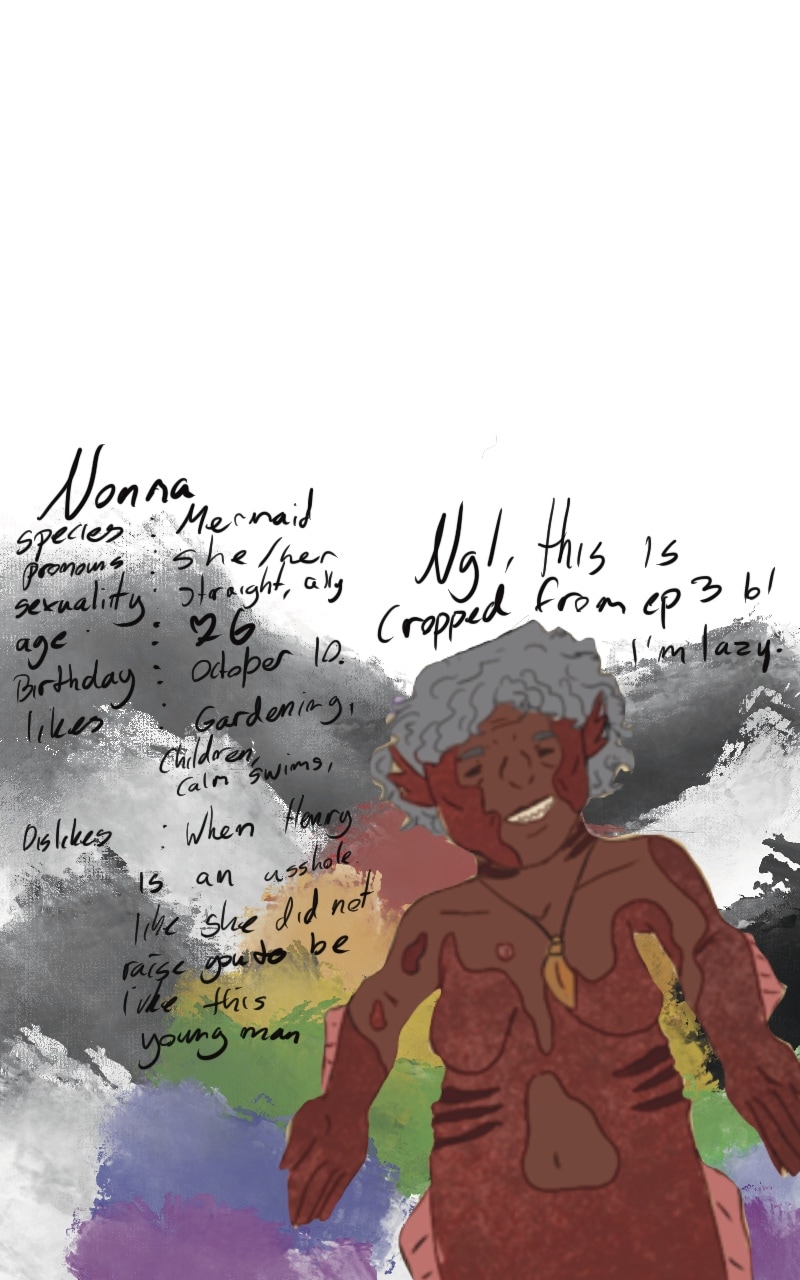 Nonna
species : Mermaid
pronouns : she/her
sexuality : straight, ally
age : 26
Birthday : October 10.
likes : Gardening,
Children,
Calm swims,
Dislikes : When Henry
is an asshole
like she did not
raise you to be
like this
young man
Ngl, this is
cropped from ep 3 bl
I'm lazy.